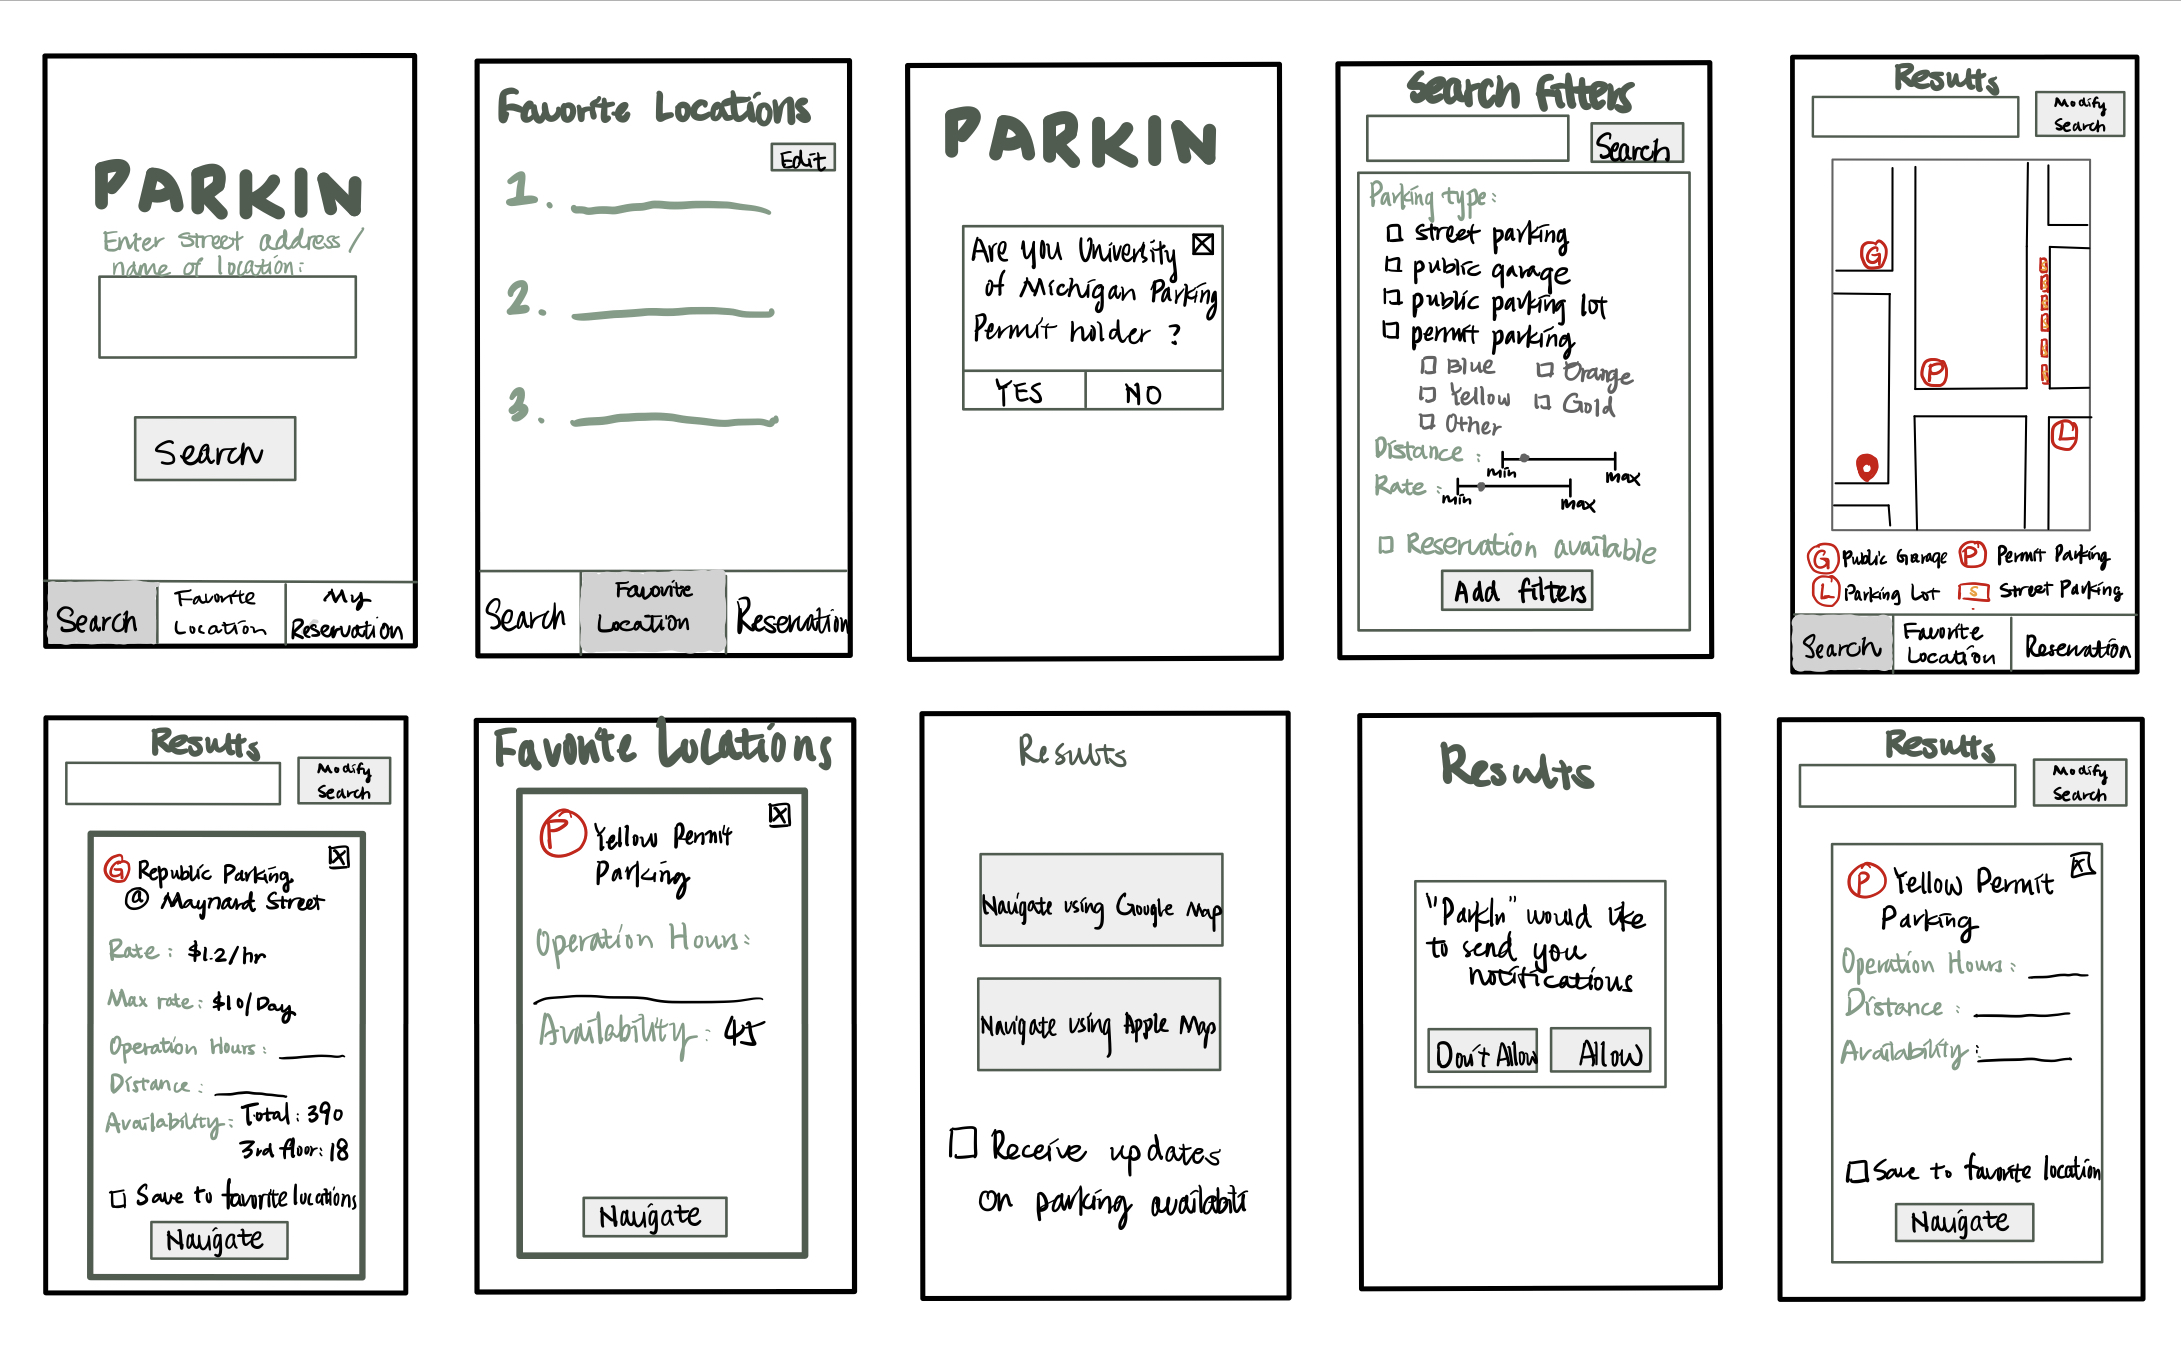 PARKIN
Enter street address /
name of location:
Search
Search
Favorite
Location
My
Reservation
Favorite Locations
Edit
1.
2.
3.
Search
Favorite
Location
Reservation
PARKIN
Are you University
of Michigan Parking
Permit holder ?
YES
NO
Search Filters
Search
Parking type:
street parking
public garage
public parking lot
permit parking
Blue
Orange
Yellow
Gold
Other
Distance :
min
max
Rate :
min
max
Reservation available
Add filters
Results
Modify
Search
G
P
L
G Public Garage
P Permit Parking
L Parking Lot
S Street Parking
Search
Favorite
Location
Reservation
Results
Modify
Search
G Republic Parking
@ Maynard Street
Rate : $1.2/hr
Max rate : $10/Day
Operation Hours :
Distance :
Availability : Total : 390
3rd floor: 18
Save to favorite locations
Navigate
Favorite Locations
P Yellow Permit
Parking
Operation Hours:
Availability : 45
Navigate
Results
Navigate using Google Map
Navigate using Apple Map
Receive updates
on parking availabili
Results
"ParkIn" would like
to send you
notifications
Don't Allow
Allow
Results
Modify
Search
P Yellow Permit
Parking
Operation Hours :
Distance :
Availability :
Save to favorite location
Navigate